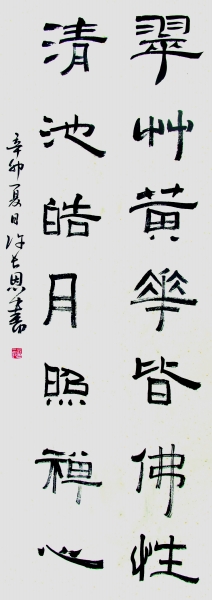 翠艸黃華皆佛性
清池皓月照禪心
辛卯夏日許長恩書